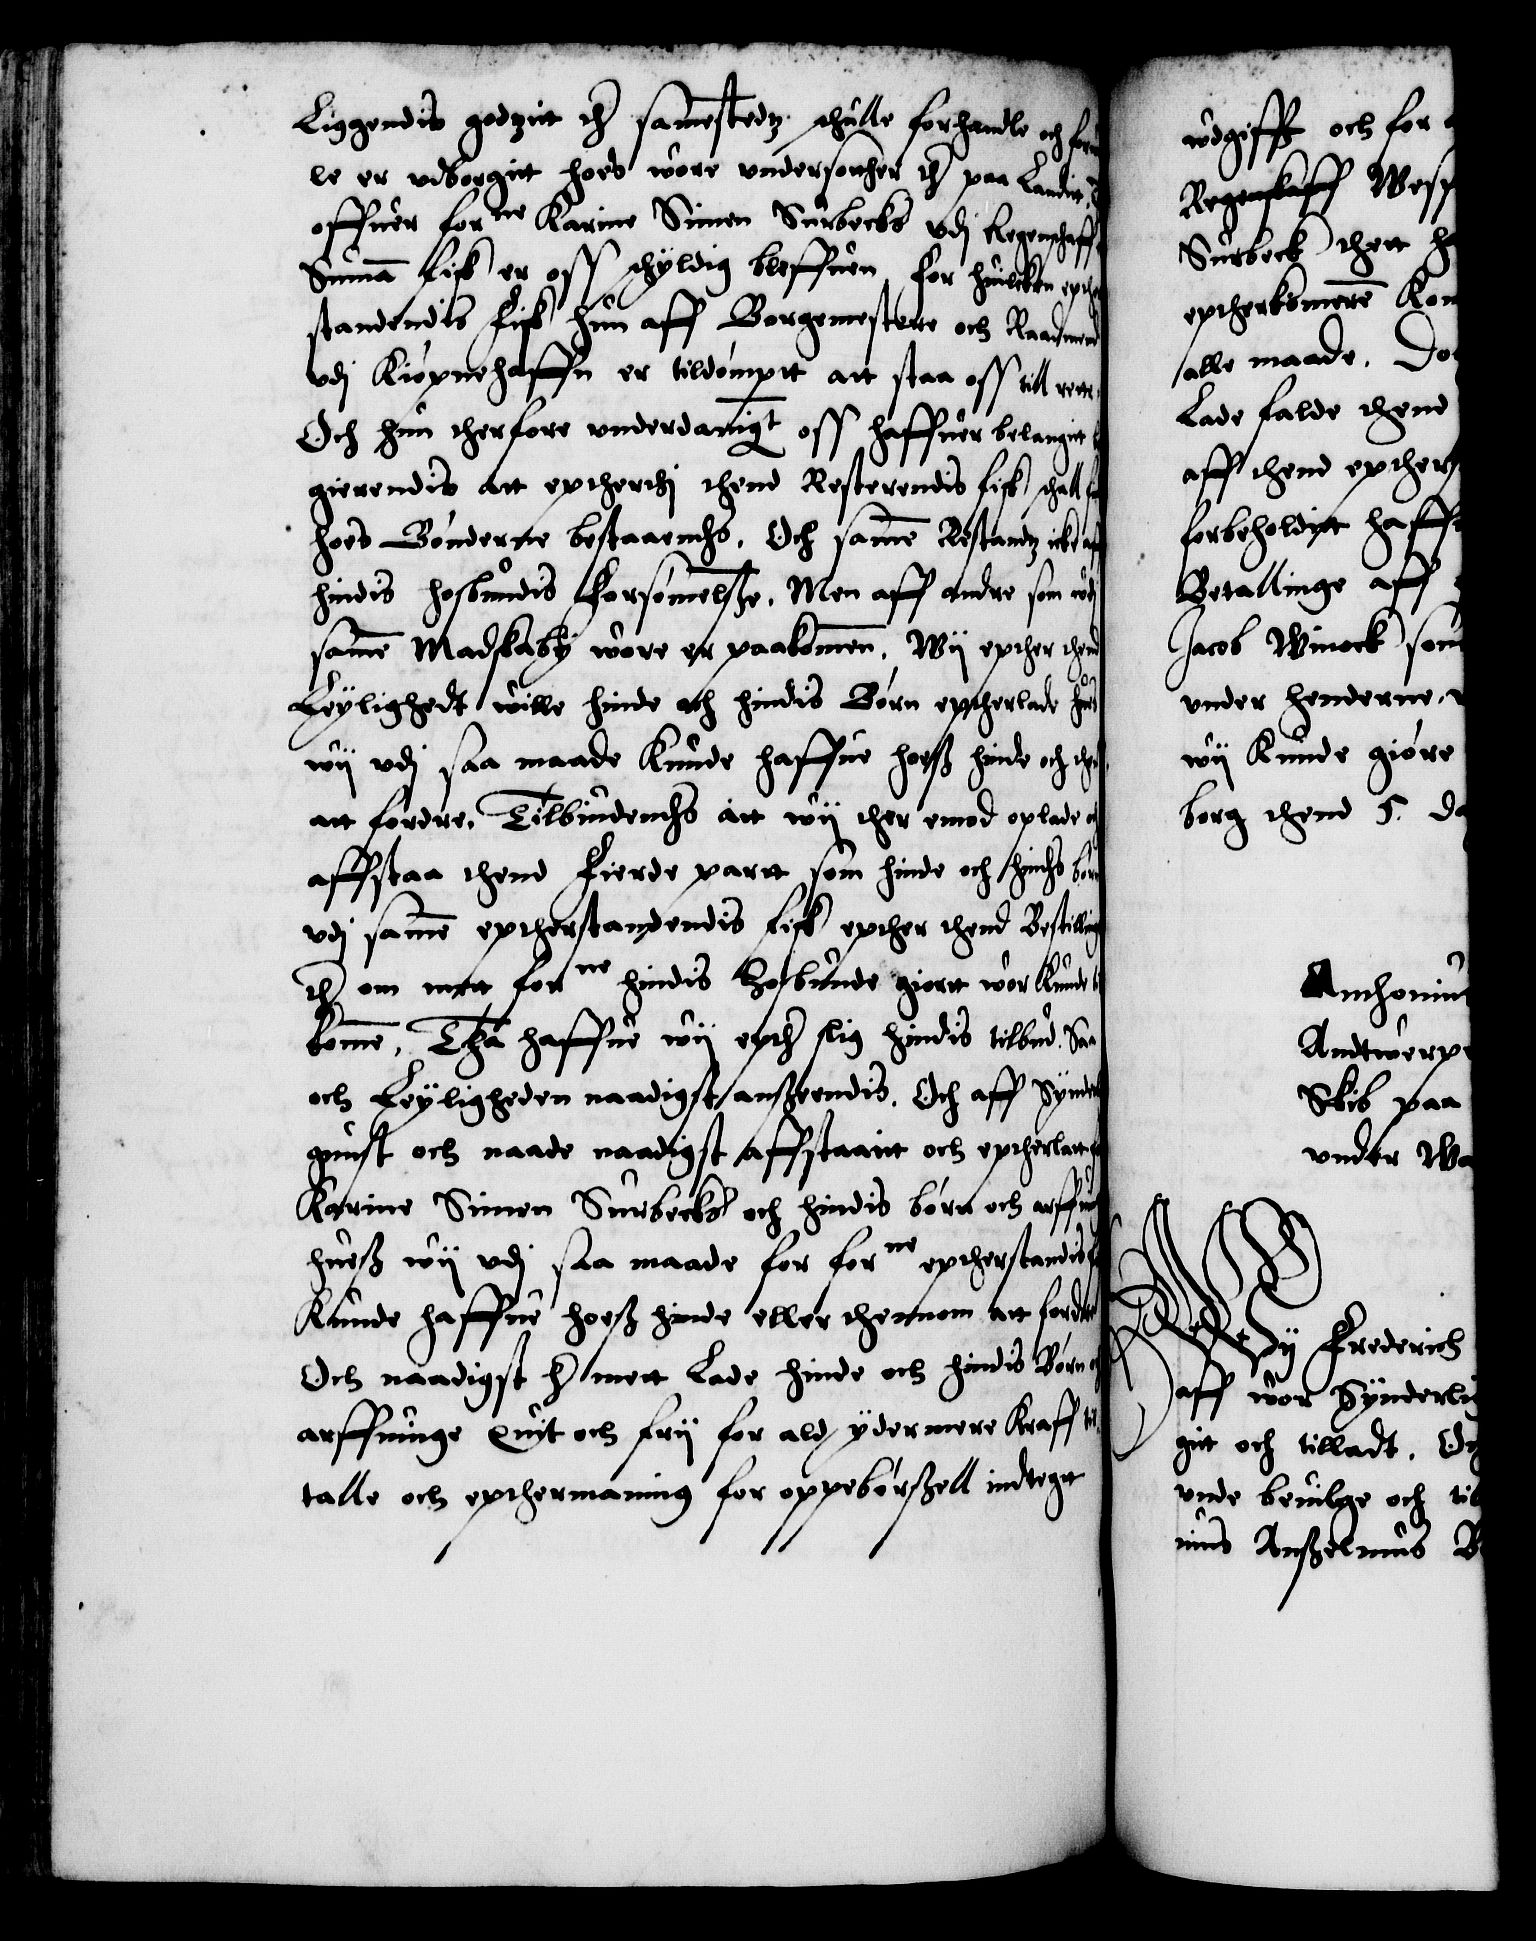 Liggendis godzit ther samestedtz, schulle forhandle och for
le er vdborgitt hoes wore vndersotther ther paa Landit.
offuer forne Karine Simen Surbecks vdj Regenschaff
Suma fisk er oss schyldig bleffuen, for huilcken epther
standendis fisk hun aff Borgemestere och Raadmend
vdj Kiøpnehaffn er tildømptt att staa oss till rette
Och hun therfore vnderdanigt oss haffuer belangitt
gierendis att eptherthj thend Resterendis fisk schall
hoes Bønderne bestaaendis, Och same Restandtz icke aff
hindis hosbundis forsømelsze, Men aff andre som vdj
same Madskaby wore er paakomen, Wij epther thend
Leylighedt wille hinde och hindis Børn eptherlade hues
wij vdj saa maade kunde haffue hoesz hinde och ther
att fordre, Tilbiudendis att wij ther emod oplade och
affstaa thend Fierde partt som hinde och hindis børn
vdj same eptherstandendis fisk epther thend Bestilling
ther om mett forne hindis Hosbunde giortt wor kunde
kome, Tha haffue wij epther slig hindis tilbud, Saa
och Leyligheden naadigst anszeendis, Och aff Synder
gunst och naade naadigst affstaaitt och eptherlatt
Karine Simen Surbecks och hindis børn och arffui
huesz wij vdj saa maade for forne eptherstandis
kunde haffue hoesz hinde eller thennom att fordre
Och naadigst her mett Lade hinde och hindis Børn och
arffuinge Quit och frij for ald ydermere Kraff til
talle och epthermaning for oppebørszell indtegt
wdgifft och for
Regenskaff Wesp
Surbeck thett ha
eptherkomere Kon
alle maade. Do
Lade falde thend
aff thend epther
forbeholditt haff
Betallinge aff
Jacob Winock som
vnder henderne,
wij Kunde giøre
borg thend 5. Da
Anthoniu
Andtwerpe
Skib paa
vnder Wa
Wij Frederich
aff wor Synderli
gitt och tilladt, Och
vnde beuilge och til
nius Anszelmus B